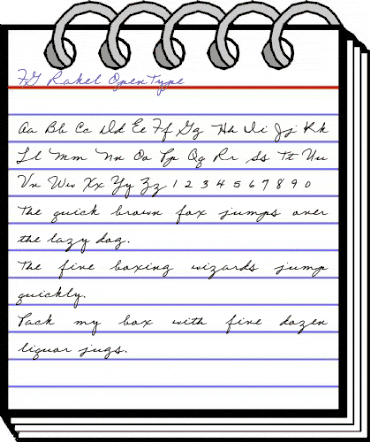 FG Rahel OpenType
Aa Bb Cc Dd Ee Ff Gg Hh Ii Jj Kk
Ll Mm Nn Oo Pp Qq Rr Ss Tt Uu
Vv Ww Xx Yy Zz 1 2 3 4 5 6 7 8 9 0
The quick brown fox jumps over
the lazy dog.
The five boxing wizards jump
quickly.
Pack my box with five dozen
liquor jugs.